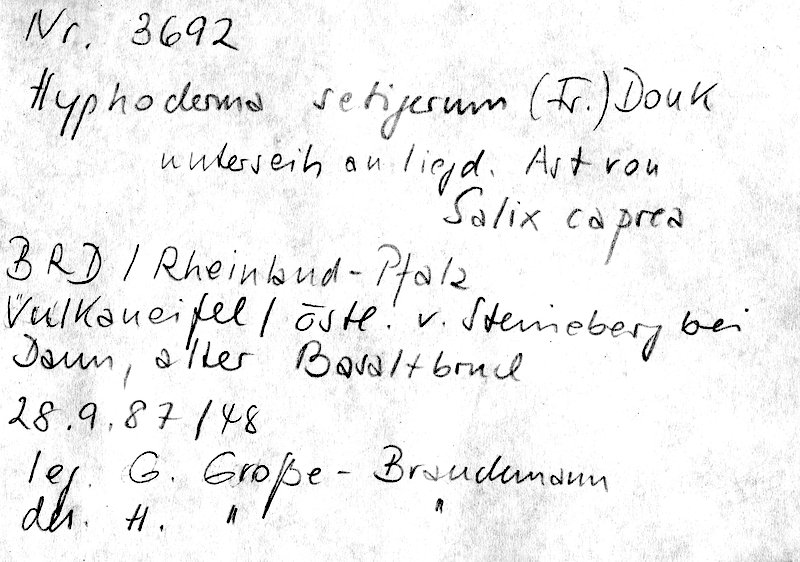 Nr. 3692
Hyphoderma setigerum (Fr.) Donk
unterseits an liegd. Ast von
Salix caprea
BRD / Rheinland-Pfalz
Vulkaneifel / östl. v. Steineberg bei
Daun, alter Basaltbruch
28.9.87 / 48
leg. G. Große-Brauckmann
det. H. " "